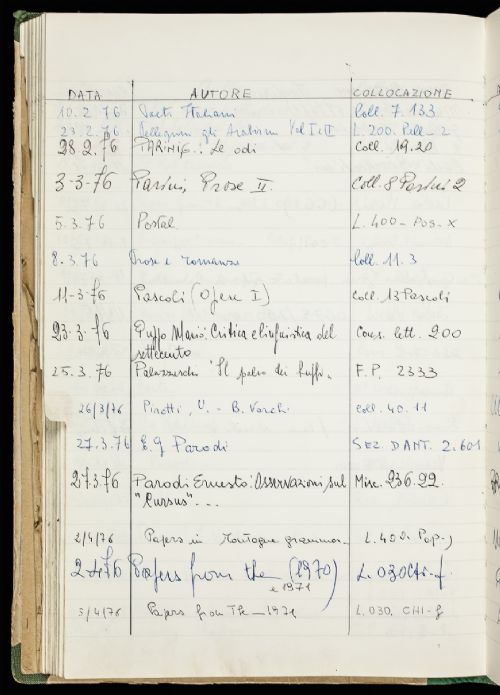 DATA AUTORE COLLOCAZIONE
10.2.76 Poeti Italiani Coll. 7.133
23.2.76 Pellegrini gli Aratrum Vol I e II L.200. Pell-2
28.2.76 PARINI G.: Le odi Coll. 19.20
3-3-76 Parini, Prose II. Coll. 8 Parini 2
5.3.76 Postal L.400-Pos-X
8.3.76 Prose e romanze Coll. 11.3
11-3-76 Pascoli (Opere I) Coll. 13 Pascoli
23-3-76 Puppo Mario: Critica e linguistica del Cons. lett. 200
settecento
25.3.76 Palazzeschi "Il palio dei buffi" F.P. 2333
26/3/76 Pirotti, U. - B. Varchi Coll. 40.11
27.3.76 E.G Parodi SEZ. DANT. 2.601
27.3.76 Parodi Ernesto: Osservazioni sul Misc. 236.22.
"Cursus"...
2/4/76 Papers in Montague grammar L.400. Pap-j
2.4.76 Papers from the (1970)
e 1971
5/4/76 Papers from The - 1971 L.030. CHI-f